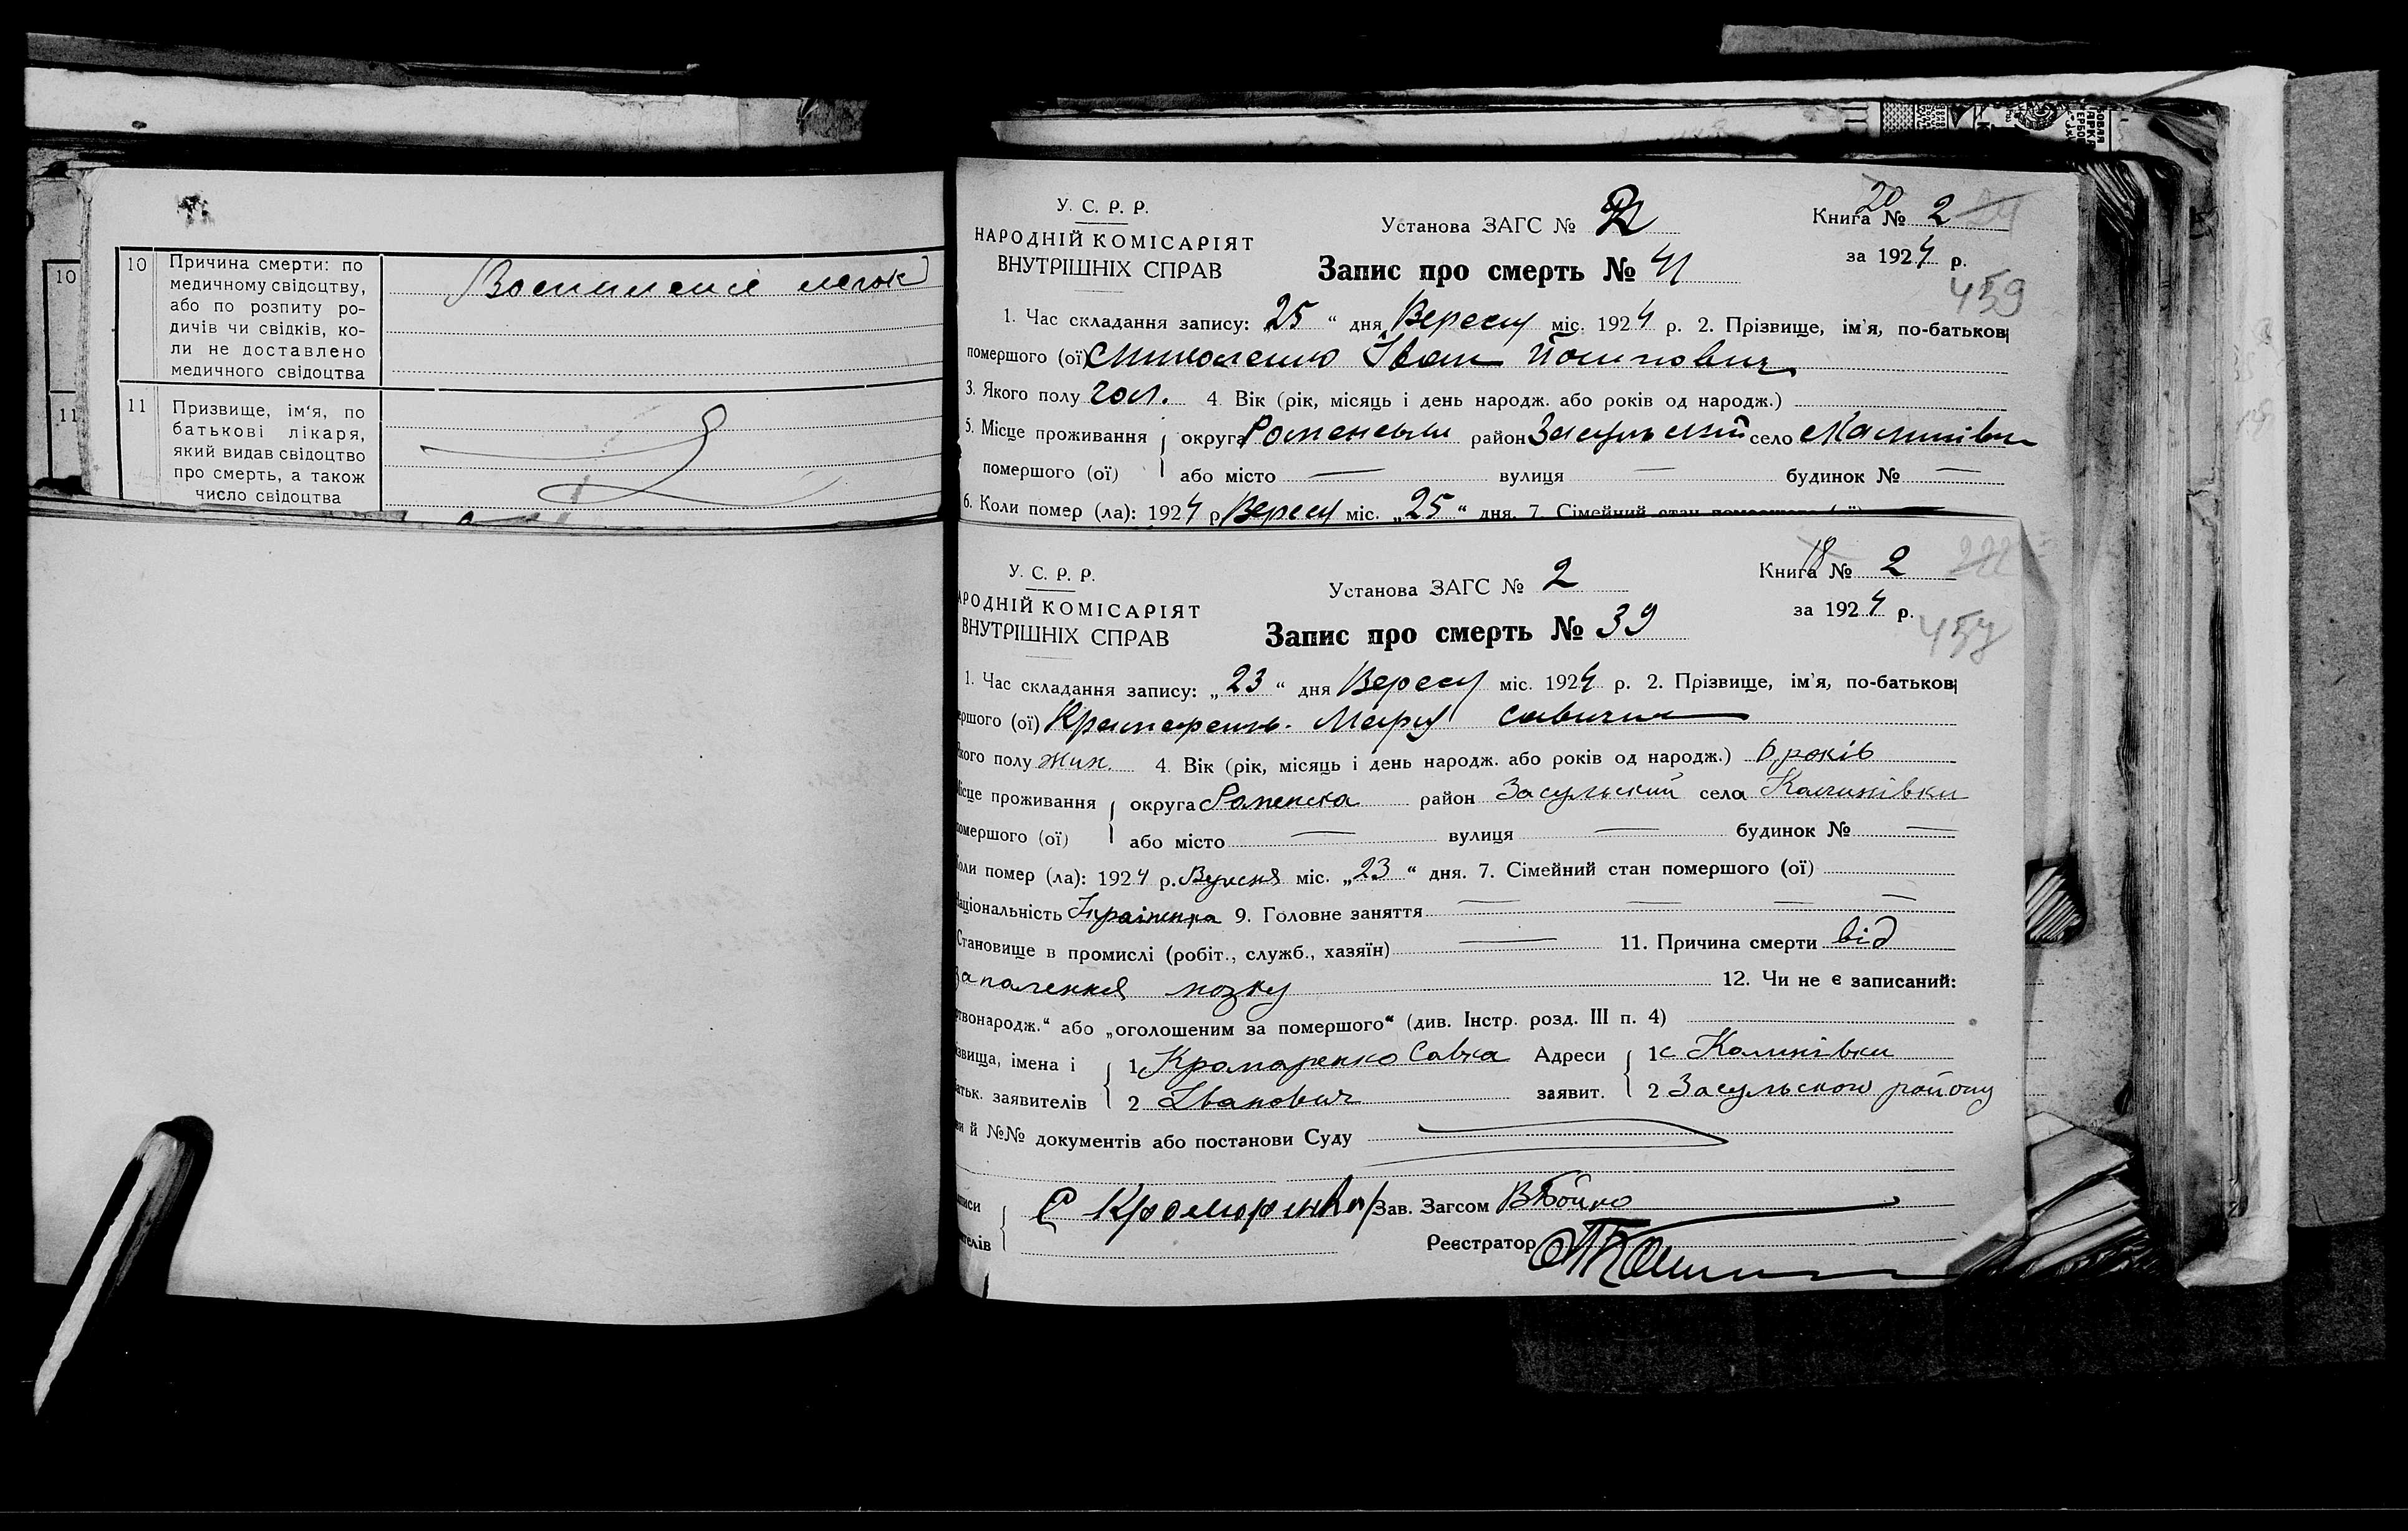 10
11
10 Причина смерти: по
медичному свідоцтву,
або по розпиту ро-
дичів чи свідків, ко-
ли не доставлено
медичного свідоцтва
Воспаление легок
11 Призвище, ім‘я, по
батькові лікаря,
який видав свідоцтво
про смерть, а також
число свідоцтва
У. С. Р. Р.
НАРОДНІЙ КОМІСАРІЯТ
ВНУТРІШНІХ СПРАВ
Установа ЗАГС №
Книга № 2
20
за 1924 р.
459
Запис про смерть № 41
1. Час складання запису: „25“ дня Вересня міс. 1924 р. 2. Прізвище, ім'я, по-батькові
помершого (ої) Миколенко Іван Йосипович
3. Якого полу чол. 4. Вік (рік, місяць і день народж. або років од народж.)
5. Місце проживання округа Роменська район Засульский село Калинівка
помершого (ої) або місто — вулиця — будинок № —
6. Коли помер (ла): 1924 р. Вересня міс. „25“ дня. 7. Сімейний стан помершого (ої)
У. С. Р. Р.
АРОДНІЙ КОМІСАРІЯТ
ВНУТРІШНІХ СПРАВ
Установа ЗАГС № 2
Книга № 2
18
222
за 1924 р.
457
Запис про смерть № 39
1. Час складання запису: „23“ дня Вересня міс. 1924 р. 2. Прізвище, ім'я, по-батькові
ершого (ої) Крамаренко Марія Савична
кого полу жін. 4. Вік (рік, місяць і день народж. або років од народж.) 6 років
ісце проживання округа Роменска район Засульский села Калинівки
омершого (ої) або місто — вулиця — будинок № —
оли помер (ла): 1924 р. Вересня міс. „23“ дня. 7. Сімейний стан помершого (ої)
аціональність Українка 9. Головне заняття — — — —
Становище в промислі (робіт., служб., хазяїн) — 11. Причина смерти від
Запалення мозку 12. Чи не є записаний:
твонародж.“ або „оголошеним за помершого“ (див. Інстр. розд. III п. 4)
ізвища, імена і 1 Крамаренко Савка Адреси 1 с Калинівки
атьк. заявителів 2 Іванович заявит. 2 Засульского району
й №№ документів або постанови Суду
писи С Крамаренко Зав. Загсом В Бойко
ителів Реєстратор